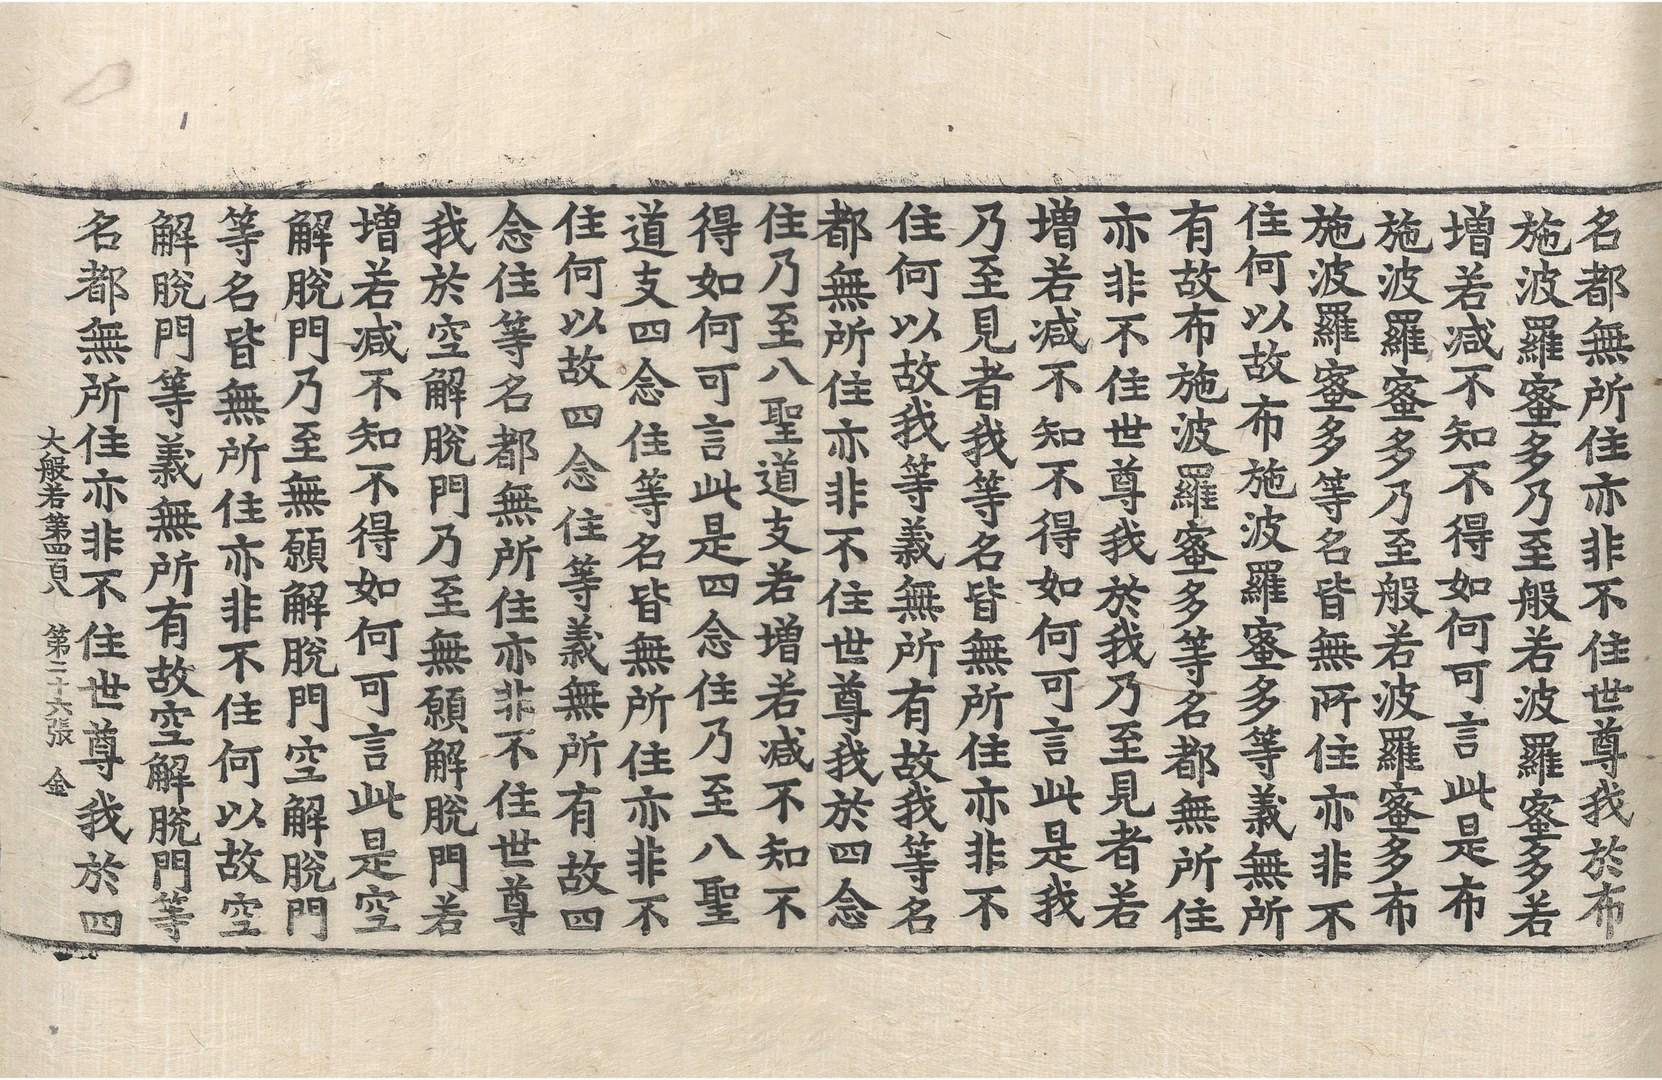 名都無所住亦非不住世尊我於布
施波羅蜜多乃至般若波羅蜜多若
增若減不知不得如何可言此是布
施波羅蜜多乃至般若波羅蜜多布
施波羅蜜多等名皆無所住亦非不
住何以故布施波羅蜜多等義無所
有故布施波羅蜜多等名都無所住
亦非不住世尊我於我乃至見者若
增若減不知不得如何可言此是我
乃至見者我等名皆無所住亦非不
住何以故我等義無所有故我等名
都無所住亦非不住世尊我於四念
住乃至八聖道支若增若減不知不
得如何可言此是四念住乃至八聖
道支四念住等名皆無所住亦非不
住何以故四念住等義無所有故四
念住等名都無所住亦非不住世尊
我於空解脫門乃至無願解脫門若
增若減不知不得如何可言此是空
解脫門乃至無願解脫門空解脫門
等名皆無所住亦非不住何以故空
解脫門等義無所有故空解脫門等
名都無所住亦非不住世尊我於四
大般若第四百八 第二十六張 金